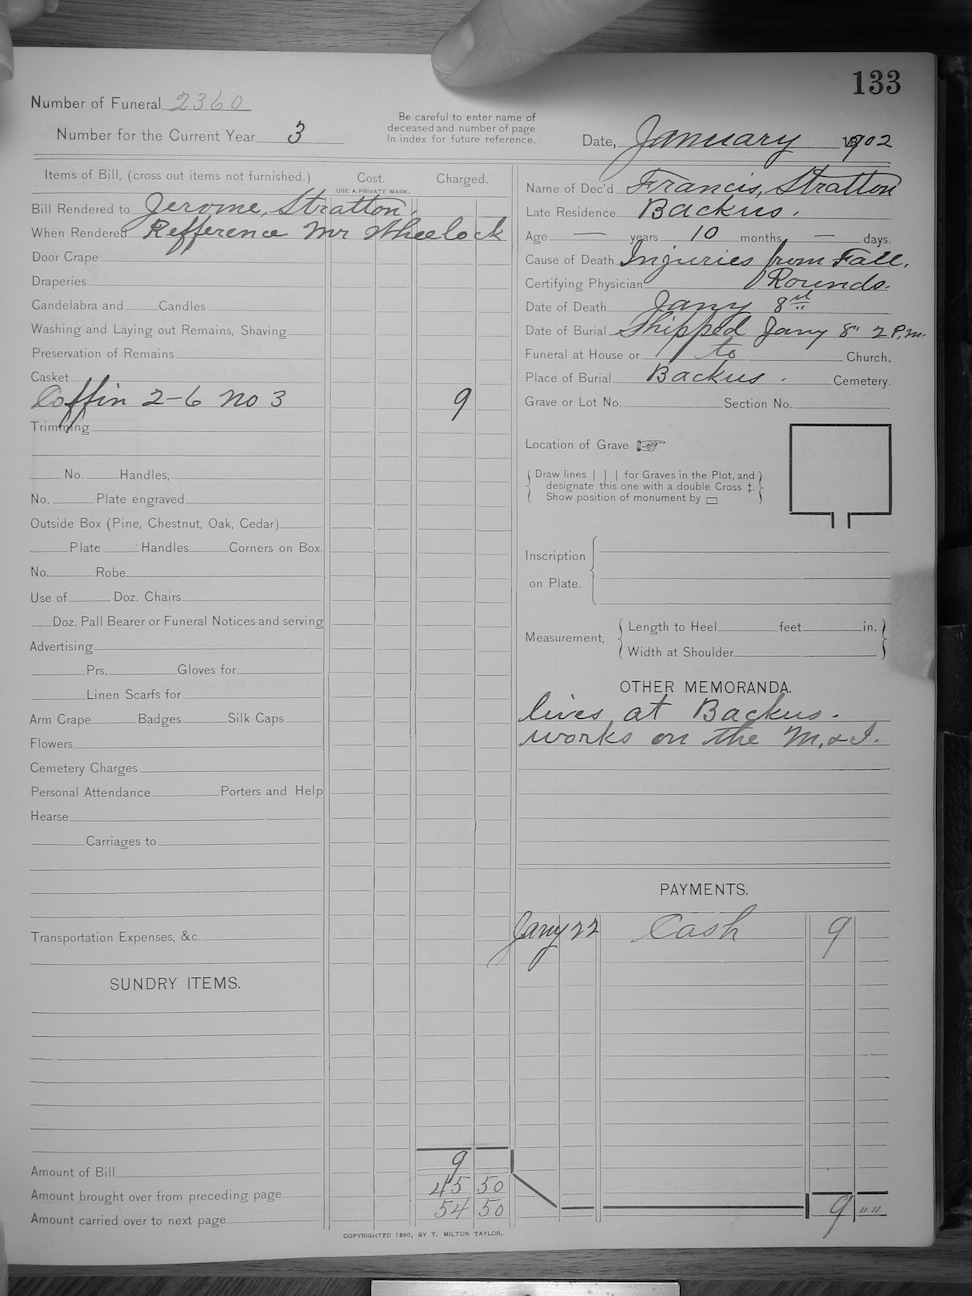 133
Number of Funeral 2360
Number for the Current Year 3
Be careful to enter name of
deceased and number of page
In index for future reference.
Date, January 1902
Items of Bill, (cross out items not furnished.) Cost. Charged.
USE A PRIVATE MARK.
Bill Rendered to Jerome, Stratton,
When Rendered Refference Mr Wheelock
Door Crape
Draperies
Candelabra and Candles
Washing and Laying out Remains, Shaving
Preservation of Remains
Casket
Coffin 2-6 no 3 9
Trimming
No. Handles,
No. Plate engraved
Outside Box (Pine, Chestnut, Oak, Cedar)
Plate Handles Corners on Box.
No. Robe
Use of Doz. Chairs
Doz. Pall Bearer or Funeral Notices and serving
Advertising
Prs. Gloves for
Linen Scarfs for
Arm Crape Badges Silk Caps
Flowers
Cemetery Charges
Personal Attendance Porters and Help
Hearse
Carriages to
Transportation Expenses, &c.
SUNDRY ITEMS.
Amount of Bill 9
Amount brought over from preceding page 45 50
Amount carried over to next page 54 50
Name of Dec'd Francis, Stratton
Late Residence Backus.
Age — years 10 months — days.
Cause of Death Injuries from Fall.
Certifying Physician Rounds.
Date of Death Jany 8
Date of Burial Shipped Jany 8" 2 P.m.
Funeral at House or to Church.
Place of Burial Backus. Cemetery.
Grave or Lot No. Section No.
Location of Grave ☞
Draw lines | | | for Graves in the Plot, and
designate this one with a double Cross ‡.
Show position of monument by ▭
Inscription
on Plate.
Measurement, Length to Heel feet in.
Width at Shoulder
OTHER MEMORANDA.
lives at Backus.
works on the M. & I.
PAYMENTS.
Jany 22 Cash 9
9 " "
COPYRIGHTED 1890, BY T. MILTON TAYLOR.